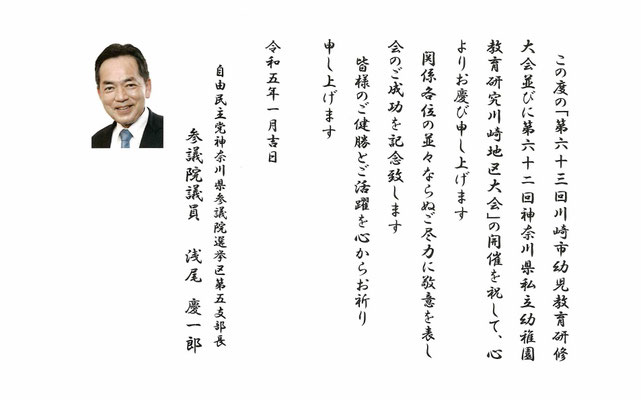 この度の「第六十三回川崎市幼児教育研修
大会並びに第六十二回神奈川県私立幼稚園
教育研究川崎地区大会」の開催を祝して、心
よりお慶び申し上げます
関係各位の並々ならぬご尽力に敬意を表し
会のご成功を記念致します
皆様のご健勝とご活躍を心からお祈り
申し上げます
令和五年一月吉日
自由民主党神奈川県参議院選挙区第五支部長
参議院議員 浅尾 慶一郎